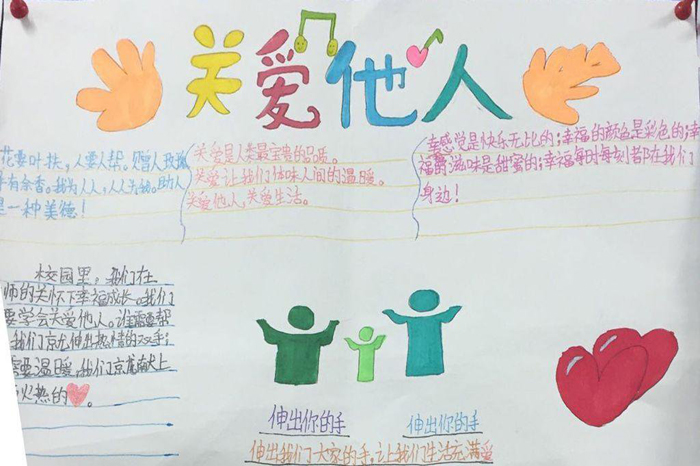 关爱他人
花要叶扶,人要人帮。赠人玫瑰
有余香。我为人人,人人为我。助人
是一种美德!
关爱是人类最宝贵的品质。
关爱让我们体味人间的温暖。
关爱他人,关爱生活。
幸感觉是快乐无比的;幸福的颜色是彩色的;幸
福的滋味是甜蜜的;幸福每时每刻都在我们
身边!
校园里,我们在
师的关怀下幸福成长。我们
要学会关爱他人。谁需要帮
我们就伸出热情的双手;
需要温暖,我们就献上
火热的
伸出你的手
伸出你的手
伸出我们大家的手,让我们生活充满爱